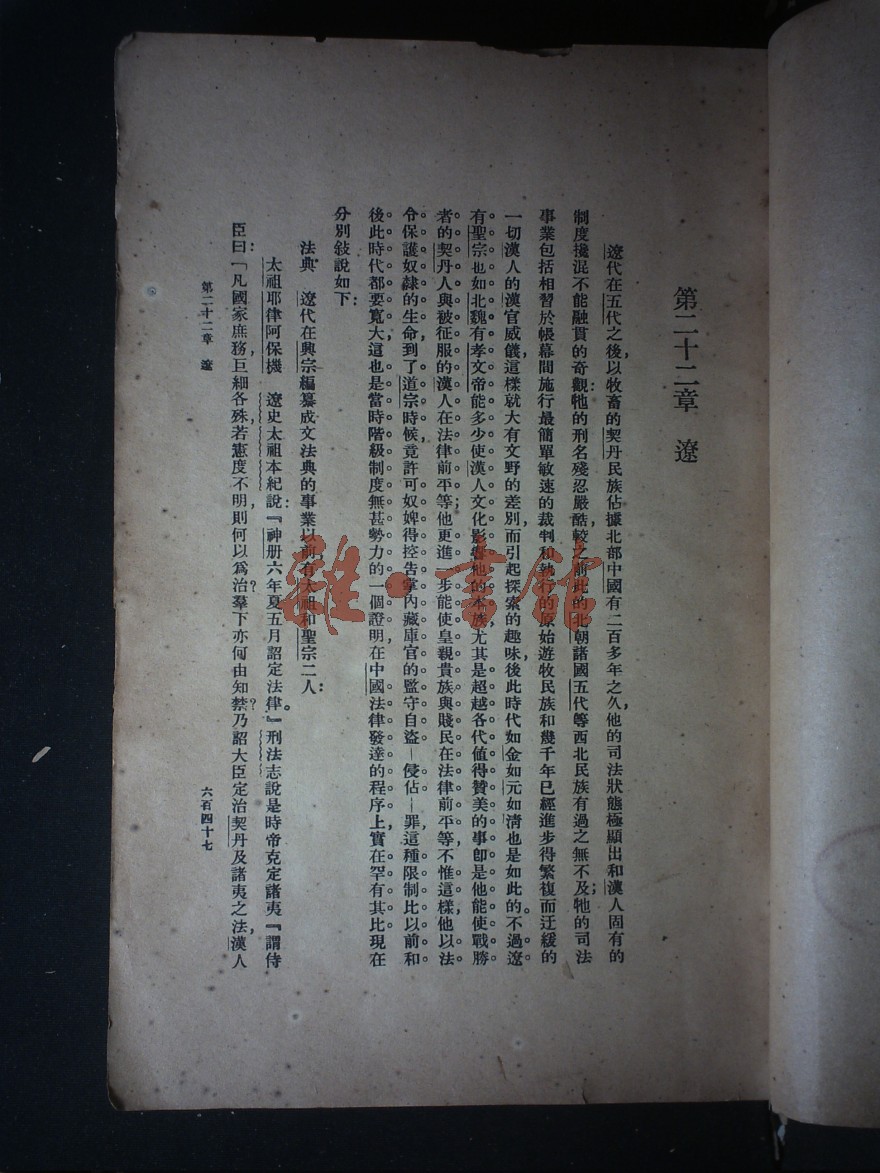 第二十二章 遼
遼代在五代之後，以牧畜的契丹民族佔據北部中國有二百多年之久，他的司法狀態極顯出和漢人固有的
制度攙混不能融貫的奇觀：牠的刑名殘忍嚴酷，較之前此的北朝諸國五代等西北民族有過之無不及；牠的司法
事業包括相習於帳幕間施行最簡單敏速的裁判和執行的原始遊牧民族和幾千年已經進步得繁複而迂緩的
一切漢人的漢官威儀，這樣就大有文野的差別，而引起探索的趣味，後此時代如金如元如清也是如此的。不過遼
有聖宗也如北魏有孝文帝能多少使漢人文化影響他的本族，尤其是超越各代值得贊美的事卽是他能使戰勝
者的契丹人與被征服的漢人在法律前平等；他更進一步能使皇親貴族與賤民在法律前平等，不惟這樣，他以法
令保護奴隸的生命，到了道宗時候，竟許可奴婢得控告掌內藏庫官的監守自盜—侵佔—罪，這種限制比以前和
後此時代都要寬大，這也是當時階級制度無甚勢力的一個證明，在中國法律發達的程序上，實在罕有其比現在
分別敍說如下：
法典 遼代在興宗編纂成文法典的事業以前，有太祖和聖宗二人：
太祖耶律阿保機 遼史太祖本紀說：『神册六年夏五月詔定法律。』刑法志說是時帝克定諸夷『謂侍
臣曰：「凡國家庶務，巨細各殊，若憲度不明，則何以爲治？羣下亦何由知禁？乃詔大臣定治契丹及諸夷之法，漢人
第二十二章 遼
六百四十七
雜·書館